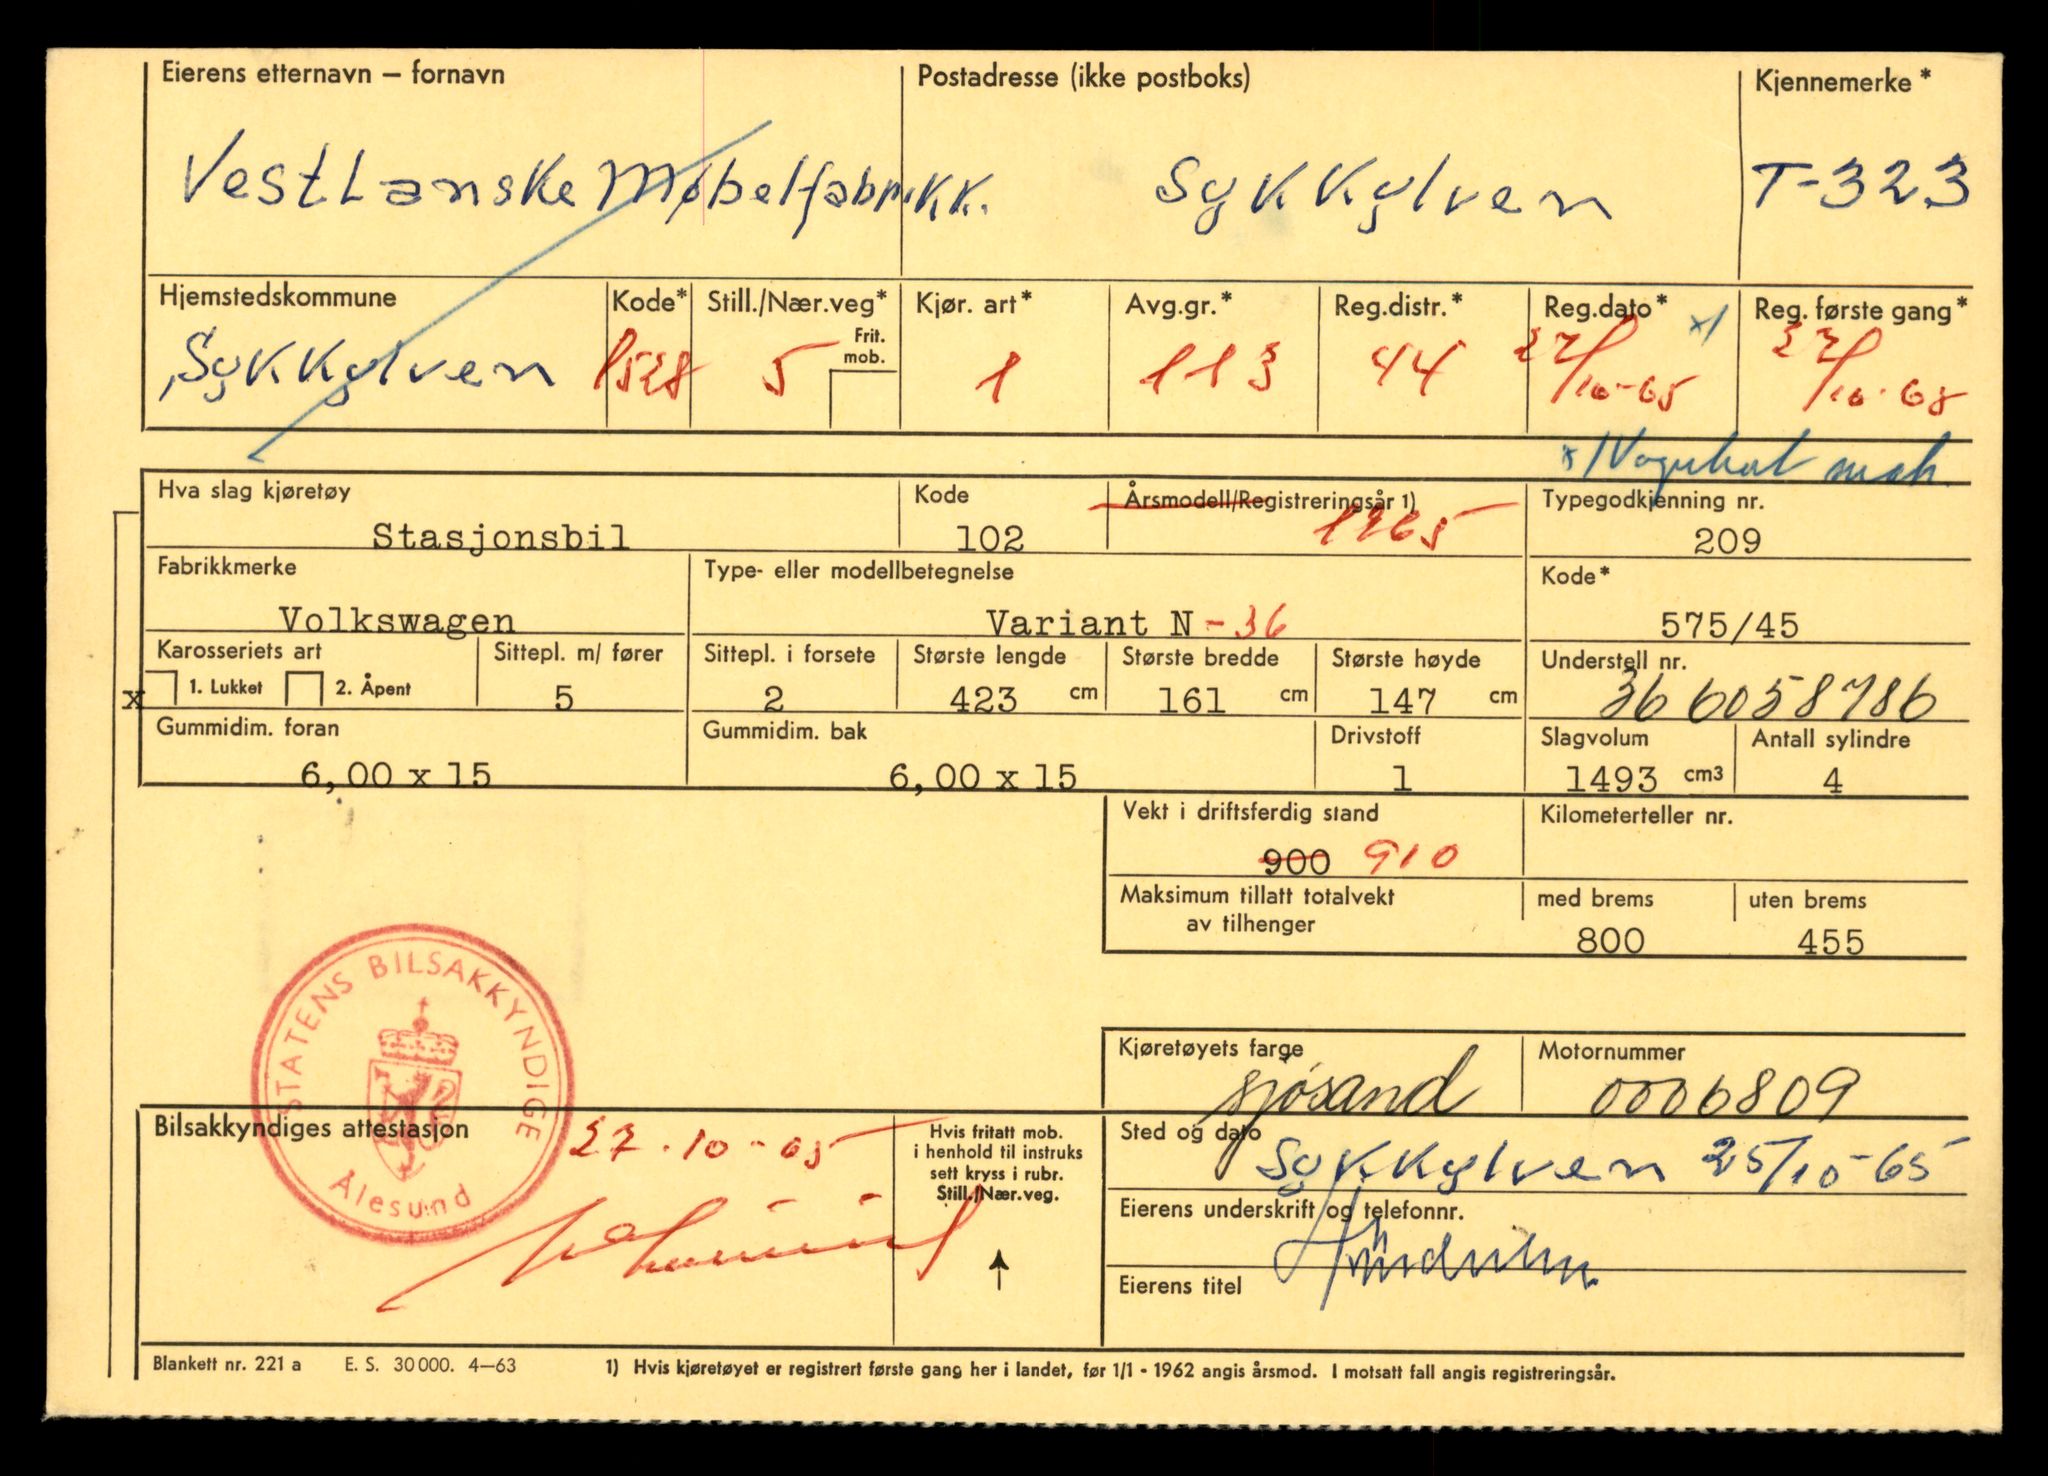 Eierens etternavn – fornavn Postadresse (ikke postboks) Kjennemerke*
VestLanske Møbelfabrikk. Sykkylven T-323
Hjemstedskommune Kode* Still./Nær.veg* Kjør. art* Avg.gr.* Reg.distr.* Reg.dato* x/ Reg. første gang*
Frit. mob.
Sykkylven 1528 5 1 113 44 27/10-65 27/10-65
Hva slag kjøretøy Kode Årsmodell/Registreringsår 1) Typegodkjenning nr.
Stasjonsbil 102 1965 209
Fabrikkmerke Type- eller modellbetegnelse Kode*
Volkswagen Variant N - 36 575/45
Karosseriets art Sittepl. m/ fører Sittepl. i forsete Største lengde Største bredde Største høyde Understell nr.
x 1. Lukket 2. Åpent 5 2 423 cm 161 cm 147 cm 366058786
Gummidim. foran Gummidim. bak Drivstoff Slagvolum Antall sylindre
6,00 x 15 6,00 x 15 1 1493 cm3 4
Vekt i driftsferdig stand Kilometerteller nr.
900 910
Maksimum tillatt totalvekt av tilhenger med brems uten brems
800 455
STATENS BILSAKKYNDIGE
Ålesund
Kjøretøyets farge Motornummer
sjøsand 0006809
Bilsakkyndiges attestasjon 27.10-65
Hvis fritatt mob.
i henhold til instruks
sett kryss i rubr.
Still./Nær.veg.
Sted og dato
Sykkylven 25/10-65
Eierens underskrift og telefonnr.
Eierens titel
Blankett nr. 221 a E. S. 30 000. 4–63 1) Hvis kjøretøyet er registrert første gang her i landet, før 1/1 - 1962 angis årsmod. I motsatt fall angis registreringsår.